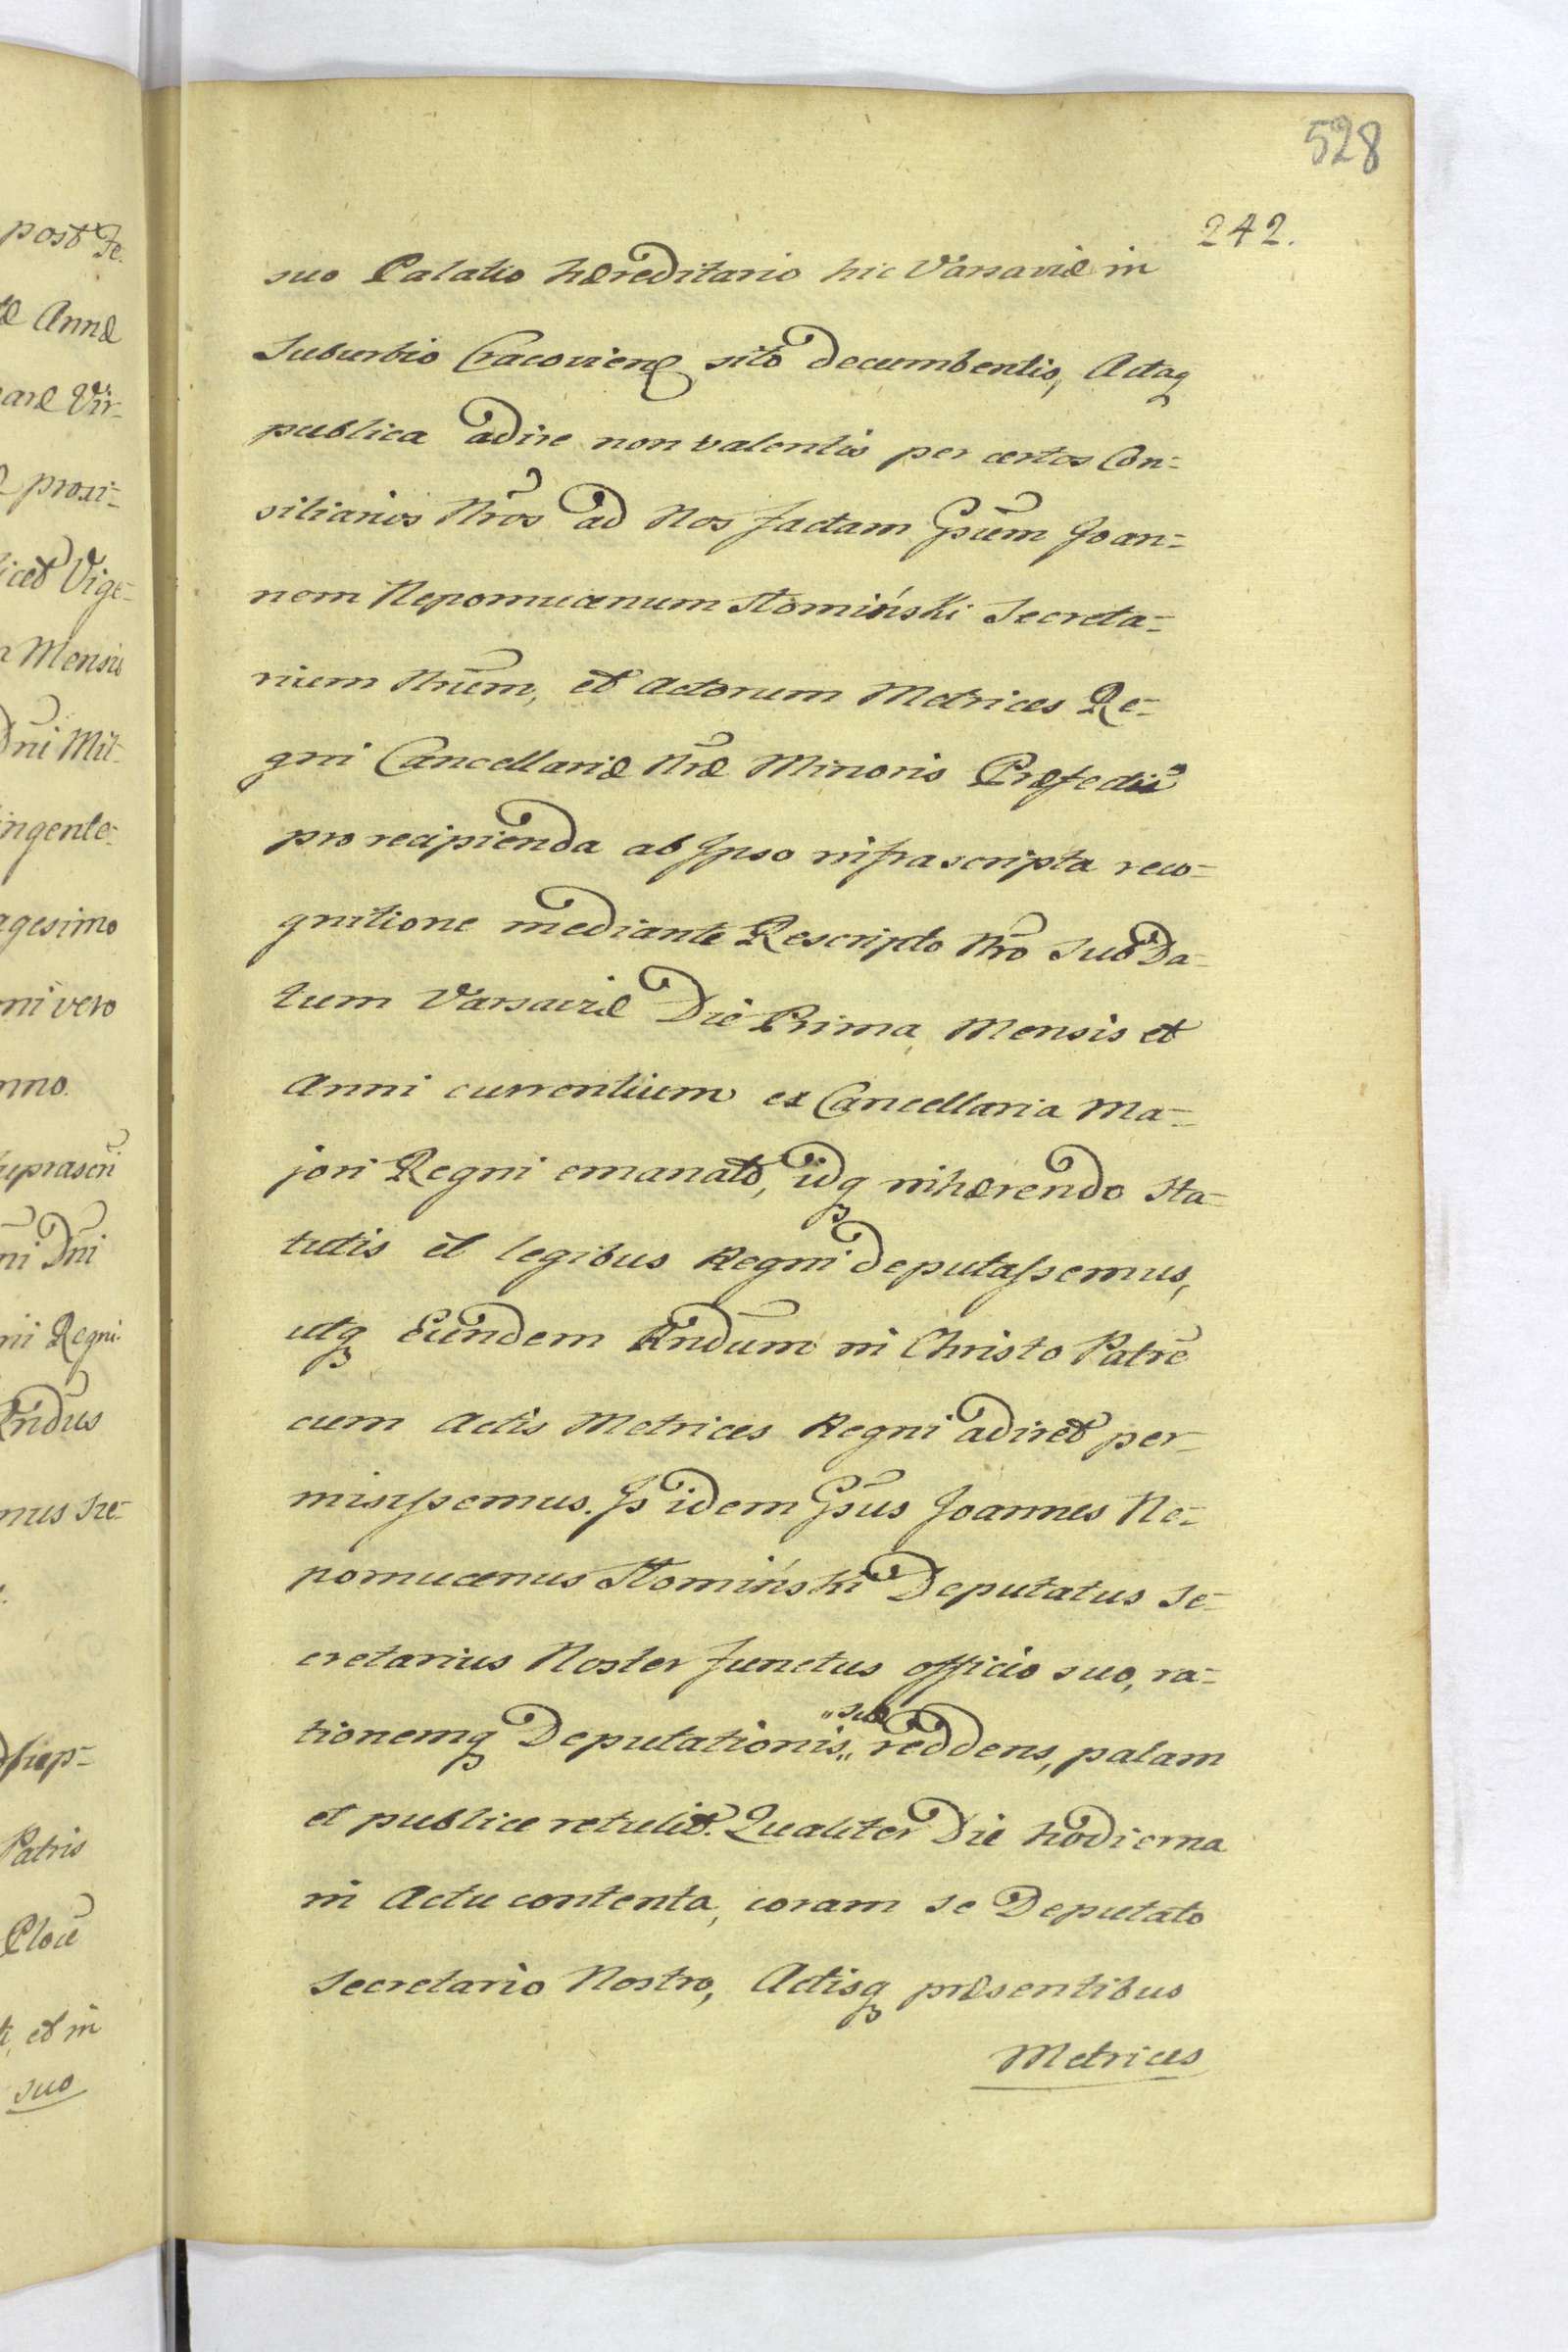 528
242.
suo Palatio hæreditario hic Varsaviæ in
Suburbio Cracovien̄ sito decumbentis, Actaq
publica adire non valentis per certos Con=
siliarios Nr̃os ad Nos factam Gsũm Joan=
nem Nepomucenum Słomiński Secreta=
rium Nrũm, et Actorum Metrices Re=
gni Cancellariæ Nr̃æ Minoris Præfectũ
pro recipienda ab Ipso infrascripta reco=
gnitione mediante Rescripto Nr̃o sub Da=
tum Varsaviæ Die Prima Mensis et
Anni currentium ex Cancellaria Ma=
jori Regni emanato, idq inhærendo Sta=
tutis et legibus Regni deputaſsemus,
utq Eundem Rñdum in Christo Patrẽ
cum Actis Metrices Regni adiret per=
misiſsemus. Is idem Gsũs Joannes Ne=
pomucenus Słomiński Deputatus Se=
cretarius Noster functus officio suo, ra=
tionemq Deputationis „suæ„ reddens, palam
et publice retulit. Qualiter Die hodierna
in Actu contenta, coram se Deputato
Secretario Nostro, Actisq præsentibus
Metrices
post Fe.
Annæ
Vir-
proxi=
Vige=
Mensis
Dñi Mil-
ingente=
agesimo
vero
nno.
uprascri
Dñi
Regni
Rñdus
Patris
et in
suo